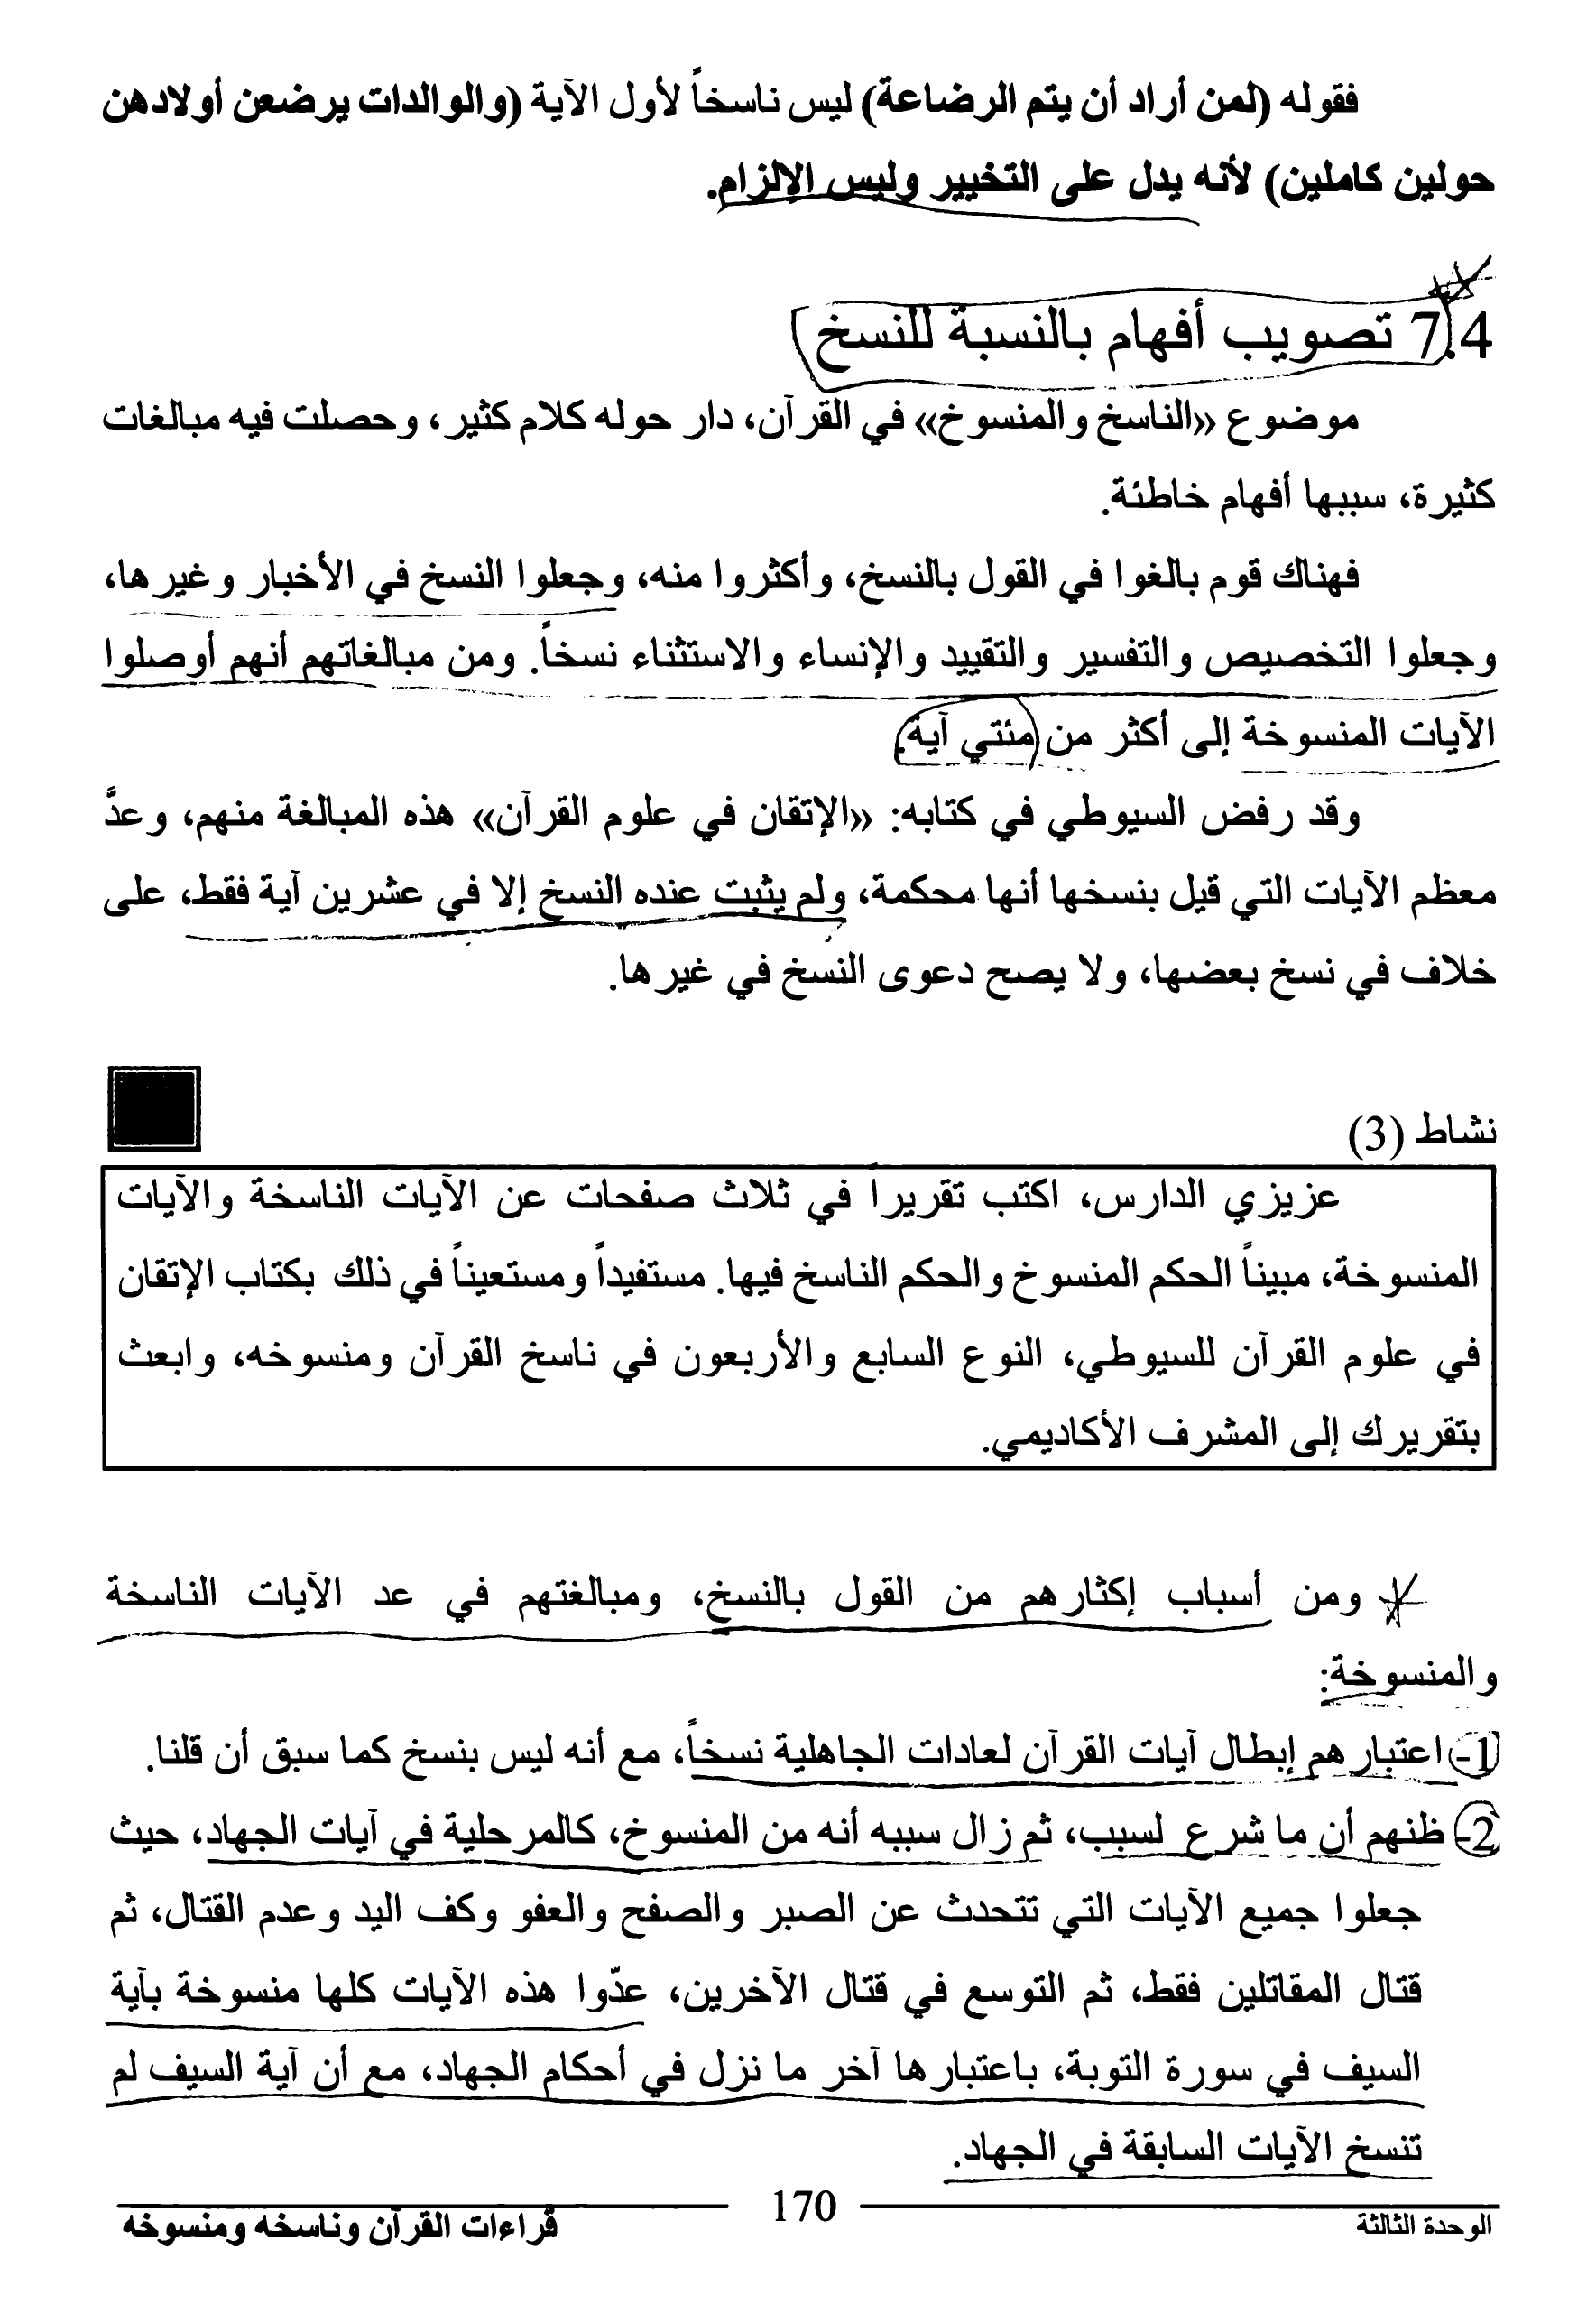 فقوله (لمن أراد أن يتم الرضاعة) ليس ناسخاً لأول الآية (والوالدات يرضعن أولادهن
حولين كاملين) لأنه يدل على التخيير وليس الإلزام.
7.4 تصويب أفهام بالنسبة للنسخ
موضوع «الناسخ والمنسوخ» في القرآن، دار حوله كلام كثير، وحصلت فيه مبالغات
كثيرة، سببها أفهام خاطئة.
فهناك قوم بالغوا في القول بالنسخ، وأكثروا منه، وجعلوا النسخ في الأخبار وغيرها،
وجعلوا التخصيص والتفسير والتقييد والإنساء والاستثناء نسخاً. ومن مبالغاتهم أنهم أوصلوا
الآيات المنسوخة إلى أكثر من مئتي آية.
وقد رفض السيوطي في كتابه: «الإتقان في علوم القرآن» هذه المبالغة منهم، وعدَّ
معظم الآيات التي قيل بنسخها أنها محكمة، ولم يثبت عنده النسخ إلا في عشرين آية فقط، على
خلاف في نسخ بعضها، ولا يصح دعوى النسخ في غيرها.
نشاط (3)
عزيزي الدارس، اكتب تقريراً في ثلاث صفحات عن الآيات الناسخة والآيات
المنسوخة، مبيناً الحكم المنسوخ والحكم الناسخ فيها. مستفيداً ومستعيناً في ذلك بكتاب الإتقان
في علوم القرآن للسيوطي، النوع السابع والأربعون في ناسخ القرآن ومنسوخه، وابعث
بتقريرك إلى المشرف الأكاديمي.
ومن أسباب إكثارهم من القول بالنسخ، ومبالغتهم في عد الآيات الناسخة
والمنسوخة:
1- اعتبارهم إبطال آيات القرآن لعادات الجاهلية نسخاً، مع أنه ليس بنسخ كما سبق أن قلنا.
2- ظنهم أن ما شرع لسبب، ثم زال سببه أنه من المنسوخ، كالمرحلية في آيات الجهاد، حيث
جعلوا جميع الآيات التي تتحدث عن الصبر والصفح والعفو وكف اليد وعدم القتال، ثم
قتال المقاتلين فقط، ثم التوسع في قتال الآخرين، عدّوا هذه الآيات كلها منسوخة بآية
السيف في سورة التوبة، باعتبارها آخر ما نزل في أحكام الجهاد، مع أن آية السيف لم
تنسخ الآيات السابقة في الجهاد.
الوحدة الثالثة 170 قراءات القرآن وناسخه ومنسوخه